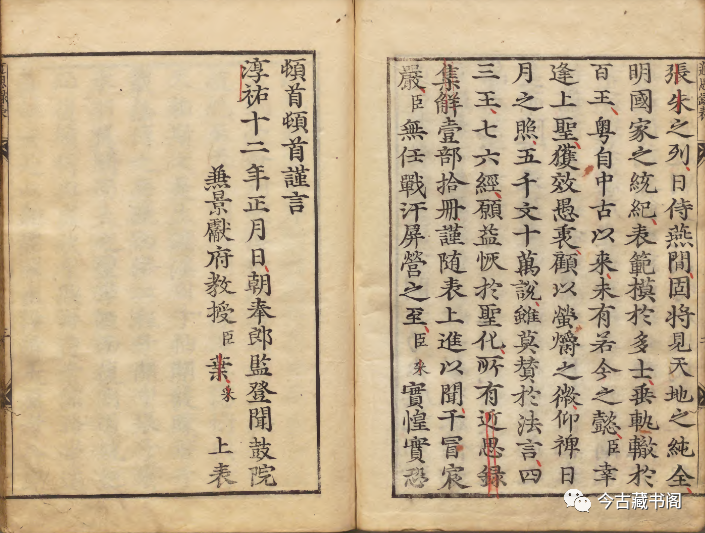 張朱之列日侍燕閒固將見天地之純全
明國家之統紀表範模於多士垂軌轍於
百王粵自中古以來未有若今之懿臣幸
逢上聖獲效愚衷顧以螢爝之微仰裨日
月之照五千文十萬說雖莫贊於法言四
三王七六經願益恢於聖化所有近思錄
集解壹部拾冊謹隨表上進以聞干冒宸
嚴臣無任戰汗屏營之至臣采實惶實恐
頓首頓首謹言
淳祐十二年正月日朝奉郎監登聞鼓院
兼景獻府教授臣葉采上表
今古藏书阁